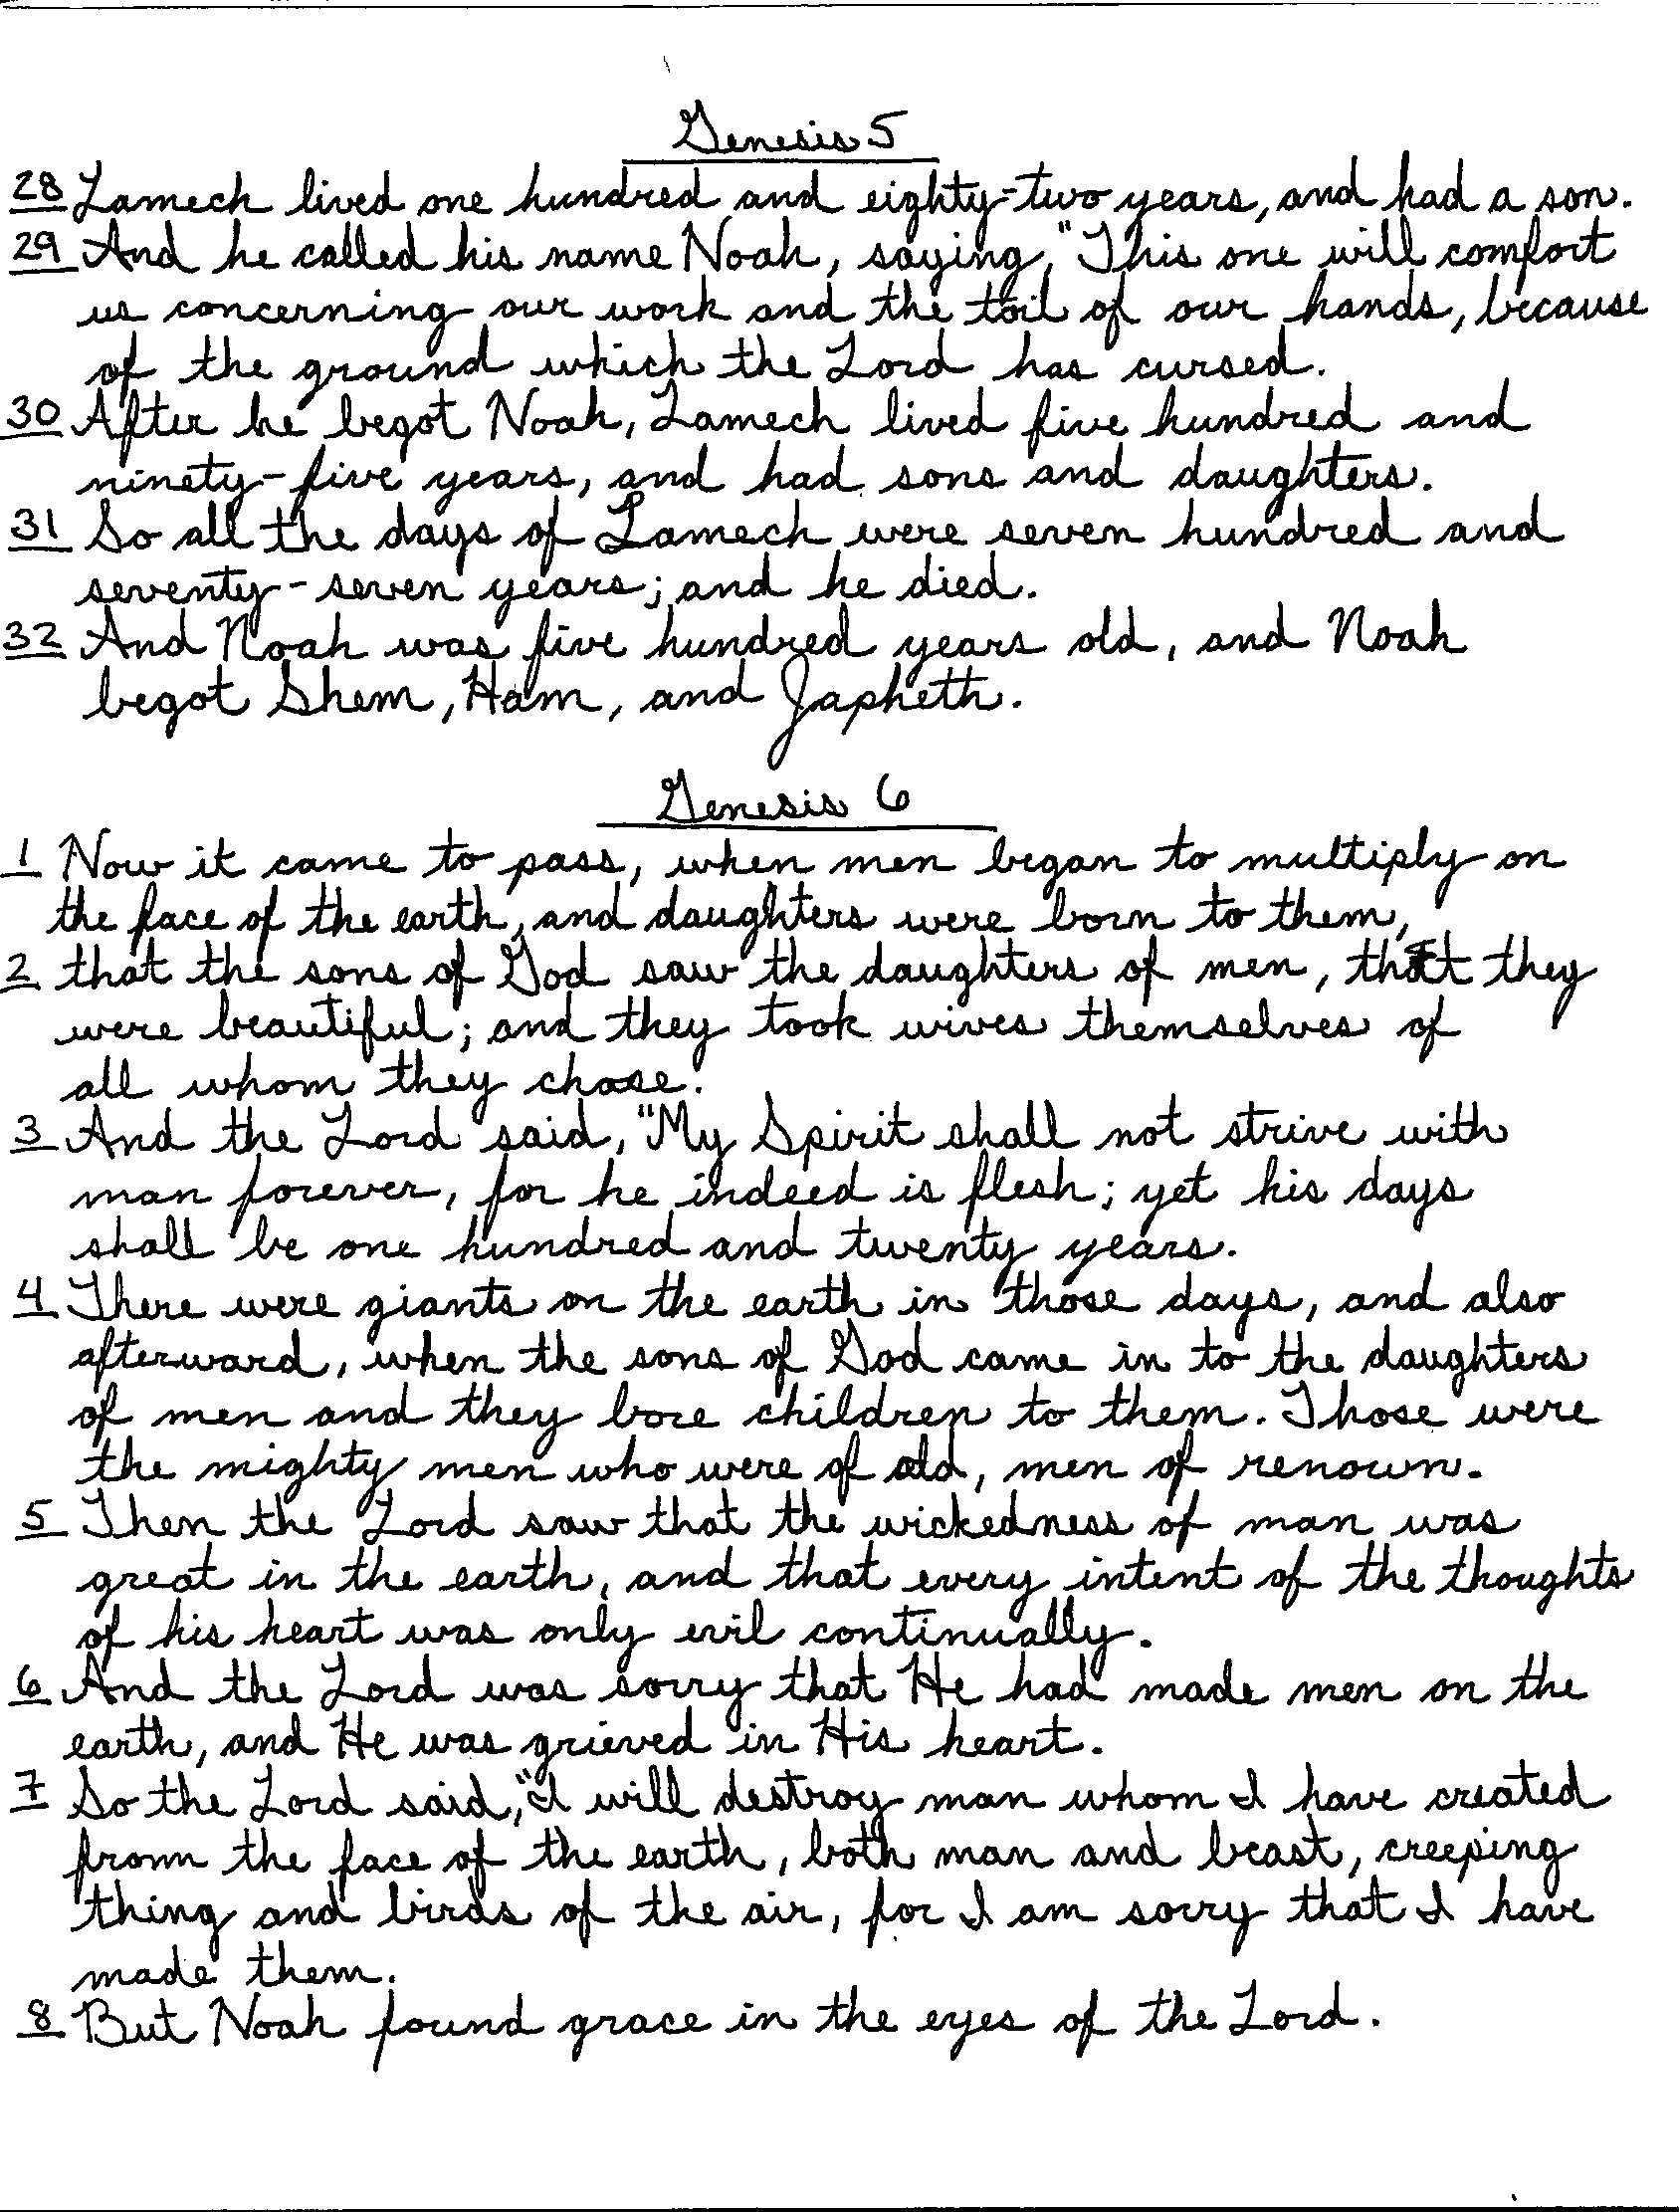 Genesis 5
28 Lamech lived one hundred and eighty-two years, and had a son.
29 And he called his name Noah, saying, "This one will comfort
us concerning our work and the toil of our hands, because
of the ground which the Lord has cursed.
30 After he begot Noah, Lamech lived five hundred and
ninety-five years, and had sons and daughters.
31 So all the days of Lamech were seven hundred and
seventy-seven years; and he died.
32 And Noah was five hundred years old, and Noah
begot Shem, Ham, and Japheth.
Genesis 6
1 Now it came to pass, when men began to multiply on
the face of the earth, and daughters were born to them,
2 that the sons of God saw the daughters of men, that they
were beautiful; and they took wives themselves of
all whom they chose.
3 And the Lord said, "My Spirit shall not strive with
man forever, for he indeed is flesh; yet his days
shall be one hundred and twenty years.
4 There were giants on the earth in those days, and also
afterward, when the sons of God came in to the daughters
of men and they bore children to them. Those were
the mighty men who were of old, men of renown.
5 Then the Lord saw that the wickedness of man was
great in the earth, and that every intent of the thoughts
of his heart was only evil continually.
6 And the Lord was sorry that He had made men on the
earth, and He was grieved in His heart.
7 So the Lord said, "I will destroy man whom I have created
from the face of the earth, both man and beast, creeping
thing and birds of the air, for I am sorry that I have
made them.
8 But Noah found grace in the eyes of the Lord.